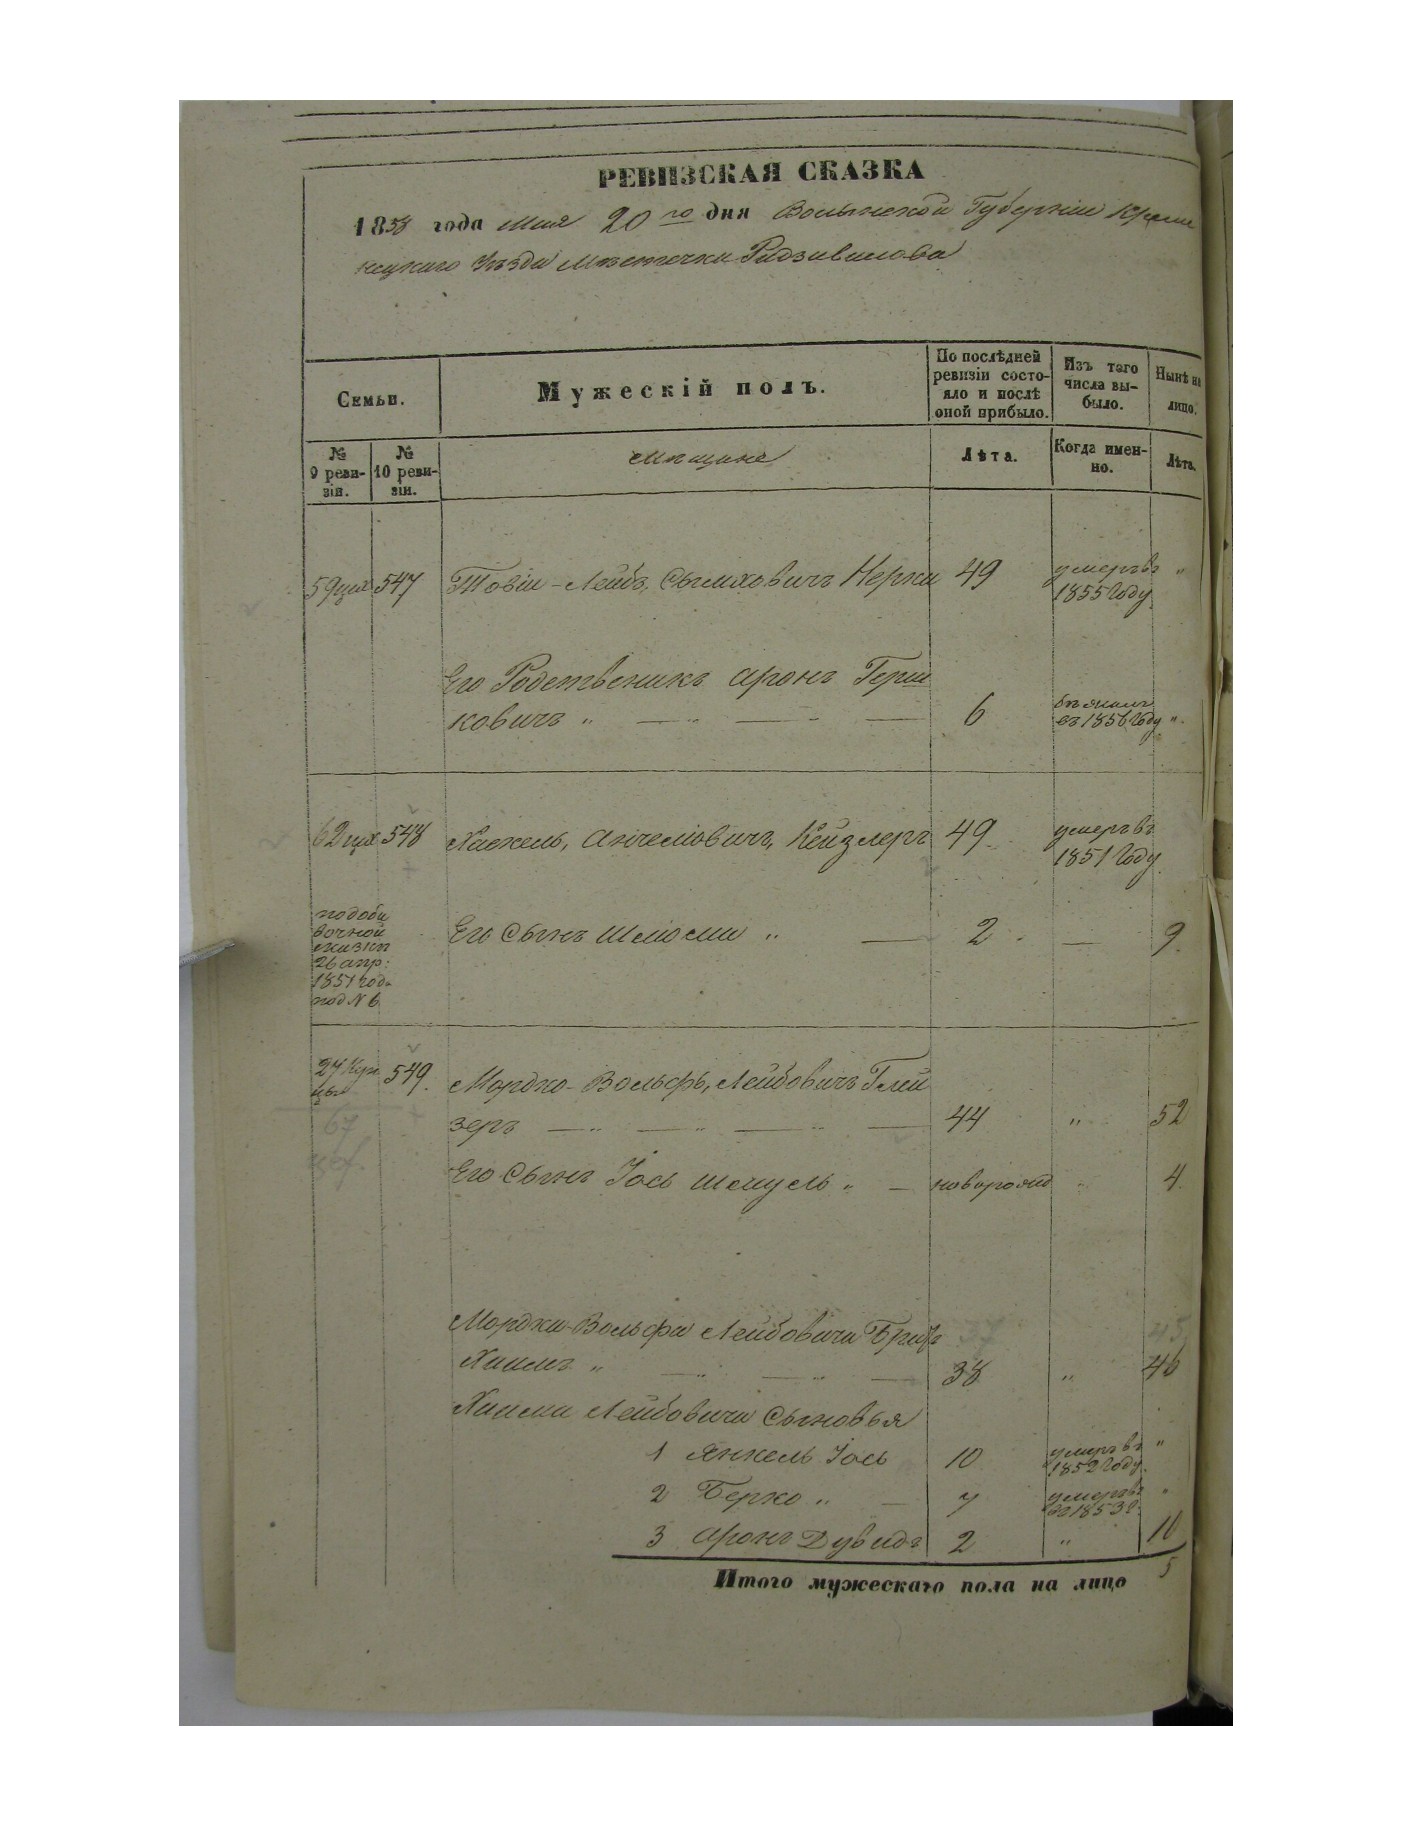 РЕВИЗСКАЯ СКАЗКА
1858 года Мая 20го дня Волынской Губерніи Креме
нецкаго Уѣзда Мѣстечка Радзивилова
Семьи.
Мужескій полъ.
По послѣдней ревизіи состо-
яло и послѣ
оной прибыло.
Изъ того
числа вы-
было.
Нынѣ на
лицо.
№
9 реви-
зіи.
№
10 реви-
зіи.
Мѣщане
Лѣта.
Когда имен-
но.
Лѣта.
59 547 Товіи-Лейбъ, Сымховичъ 49 умеръ въ "
1855 Году
Его Родственикъ Аронъ Герш
ковичъ " — " — — 6 въ 1856 Году "
62 548 Хаскель, Анчеліовичъ, Кейзлеръ 49 умеръ въ
1851 Году
26 апр:
1851 год
под N 6
Его Сынъ Шліома " — 2 — 9
27 Куп
цы 549. Мордко-Вольфъ, Лейбовичъ Глей
зеръ — " — " — " — 44 " 52
67
Его Сынъ Іось Шмуль " — новорожд " 4
Мордки-Вольфа Лейбовича Братъ 37 45
Хаимъ " — " — " — 38 " 46
Хаима Лейбовича Сыновья
1 Янкель Іось 10 умеръ въ "
1852 Году
2 Берко " — 7 умеръ
въ 1853 г. "
3 Аронъ Дувидъ 2 " 10
Итого мужескаго пола на лицо 5